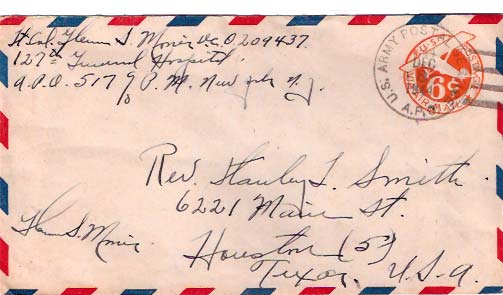 Lt. Col. Glenn S. Mosier O-209437.
127th General Hospital
A.P.O. 517 % P.M. New York N.Y.
U.S. ARMY POSTAL
DEC
A.P.O.
6¢
AIR MAIL
Rev. Stanley L. Smith
6221 Main St.
Glenn S. Mosier
Houston (5)
Texas, U.S.A.